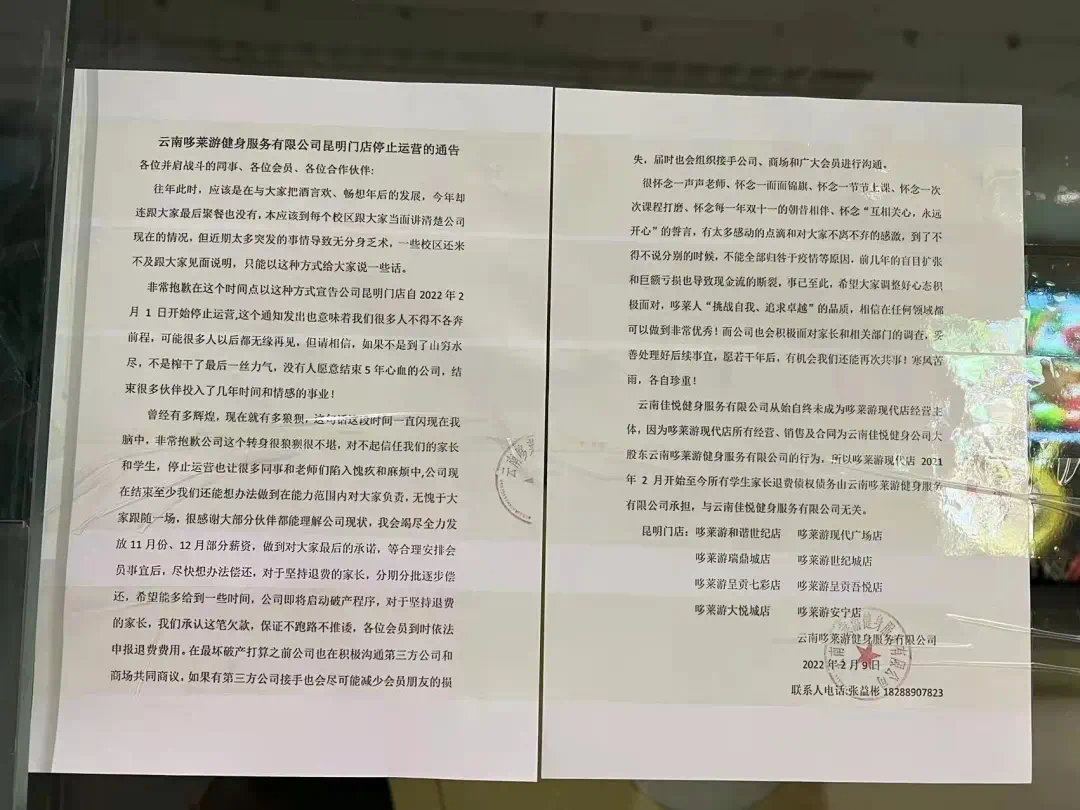 云南哆莱游健身服务有限公司昆明门店停止运营的通告
各位并启战斗的同事、各位会员、各位合作伙伴:
往年此时，应该是在与大家把酒言欢、畅想年后的发展，今年却
连跟大家最后聚餐也没有，本应该到每个校区跟大家当面讲清楚公司
现在的情况，但近期太多突发的事情导致无分身乏术，一些校区还来
不及跟大家见面说明，只能以这种方式给大家说一些话。
非常抱歉在这个时间点以这种方式宣告公司昆明门店自2022年2
月 1 日开始停止运营,这个通知发出也意味着我们很多人不得不各奔
前程，可能很多人以后都无缘再见，但请相信，如果不是到了山穷水
尽，不是榨干了最后一丝力气，没有人愿意结束 5 年心血的公司，结
束很多伙伴投入了几年时间和情感的事业！
曾经有多辉煌，现在就有多狼狈，这句话这段时间一直闪现在我
脑中，非常抱歉公司这个转身很狼狈很不堪，对不起信任我们的家长
和学生，停止运营也让很多同事和老师们陷入愧疚和麻烦中,公司现
在结束至少我们还能想办法做到在能力范围内对大家负责，无愧于大
家跟随一场，很感谢大部分伙伴都能理解公司现状，我会竭尽全力发
放 11 月份、12 月部分薪资，做到对大家最后的承诺，等合理安排会
员事宜后，尽快想办法偿还，对于坚持退费的家长，分期分批逐步偿
还，希望能多给到一些时间，公司即将启动破产程序，对于坚持退费
的家长，我们承认这笔欠款，保证不跑路不推诿，各位会员到时依法
申报退费费用。在最坏破产打算之前公司也在积极沟通第三方公司和
商场共同商议，如果有第三方公司接手也会尽可能减少会员朋友的损
失，届时也会组织接手公司、商场和广大会员进行沟通。
很怀念一声声老师、怀念一面面锦旗、怀念一节节上课、怀念一次
次课程打磨、怀念每一年双十一的朝昔相伴、怀念“互相关心，永远
开心”的誓言，有太多感动的点滴和对大家不离不弃的感激，到了不
得不说分别的时候，不能全部归咎于疫情等原因，前几年的盲目扩张
和巨额亏损也导致现金流的断裂，事已至此，希望大家调整好心态积
极面对，哆莱人“挑战自我、追求卓越”的品质，相信在任何领域都
可以做到非常优秀！而公司也会积极面对家长和相关部门的调查，妥
善处理好后续事宜，愿若干年后，有机会我们还能再次共事！寒风苦
雨，各自珍重！
云南佳悦健身服务有限公司从始自终未成为哆莱游现代店经营主
体，因为哆莱游现代店所有经营、销售及合同为云南佳悦健身公司大
股东云南哆莱游健身服务有限公司的行为，所以哆莱游现代店 2021
年 2 月开始至今所有学生家长退费债权债务由云南哆莱游健身服务
有限公司承担，与云南佳悦健身服务有限公司无关。
昆明门店：哆莱游和谐世纪店 哆莱游现代广场店
哆莱游瑞鼎城店 哆莱游世纪城店
哆莱游呈贡七彩店 哆莱游呈贡吾悦店
哆莱游大悦城店 哆莱游安宁店
云南哆莱游健身服务有限公司
2022 年 2 月 9 日
联系人电话:张益彬 18288907823